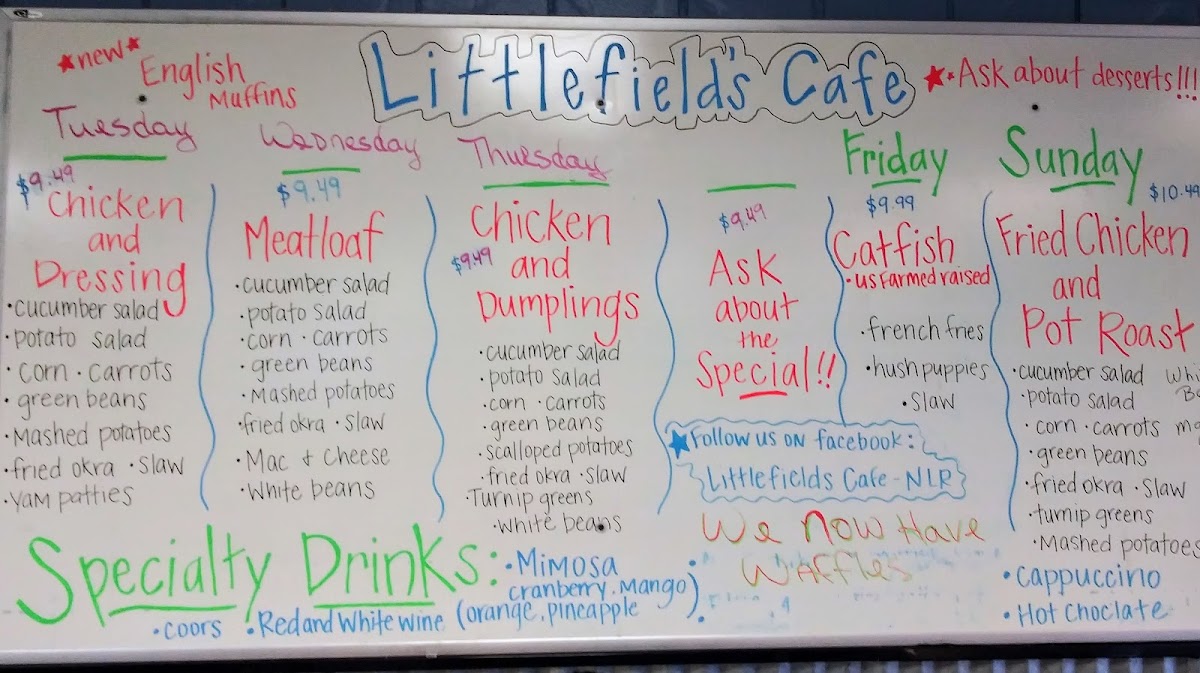 *new*
English
Muffins
Littlefield's Cafe
Ask about desserts!!!
Tuesday
$9.49
Chicken
and
Dressing
•cucumber salad
•potato salad
•corn •carrots
•green beans
•Mashed potatoes
•fried okra •Slaw
•YAM patties
Wednesday
$9.49
Meatloaf
•cucumber salad
•potato salad
•corn •carrots
•green beans
•Mashed potatoes
•fried okra •Slaw
•Mac & Cheese
•White beans
Thursday
Chicken
$9.49 and
Dumplings
•cucumber salad
•potato salad
•corn •carrots
•green beans
•scalloped potatoes
•fried okra •slaw
•Turnip greens
•White beans
$9.49
Ask
about
the
Special!!
Friday
$9.99
Catfish
•US Farmed raised
•french fries
•hushpuppies
•Slaw
Sunday
$10.49
Fried Chicken
and
Pot Roast
•cucumber salad
•potato salad
•corn •carrots
•green beans
•fried okra •Slaw
•turnip greens
•Mashed potatoes
Follow us on facebook:
Littlefields Cafe - NLR
We Now Have
Waffles
Specialty Drinks:
•Mimosa
cranberry.Mango
(orange.pineapple).
•coors •Red and White wine
•Cappuccino
•Hot Choclate